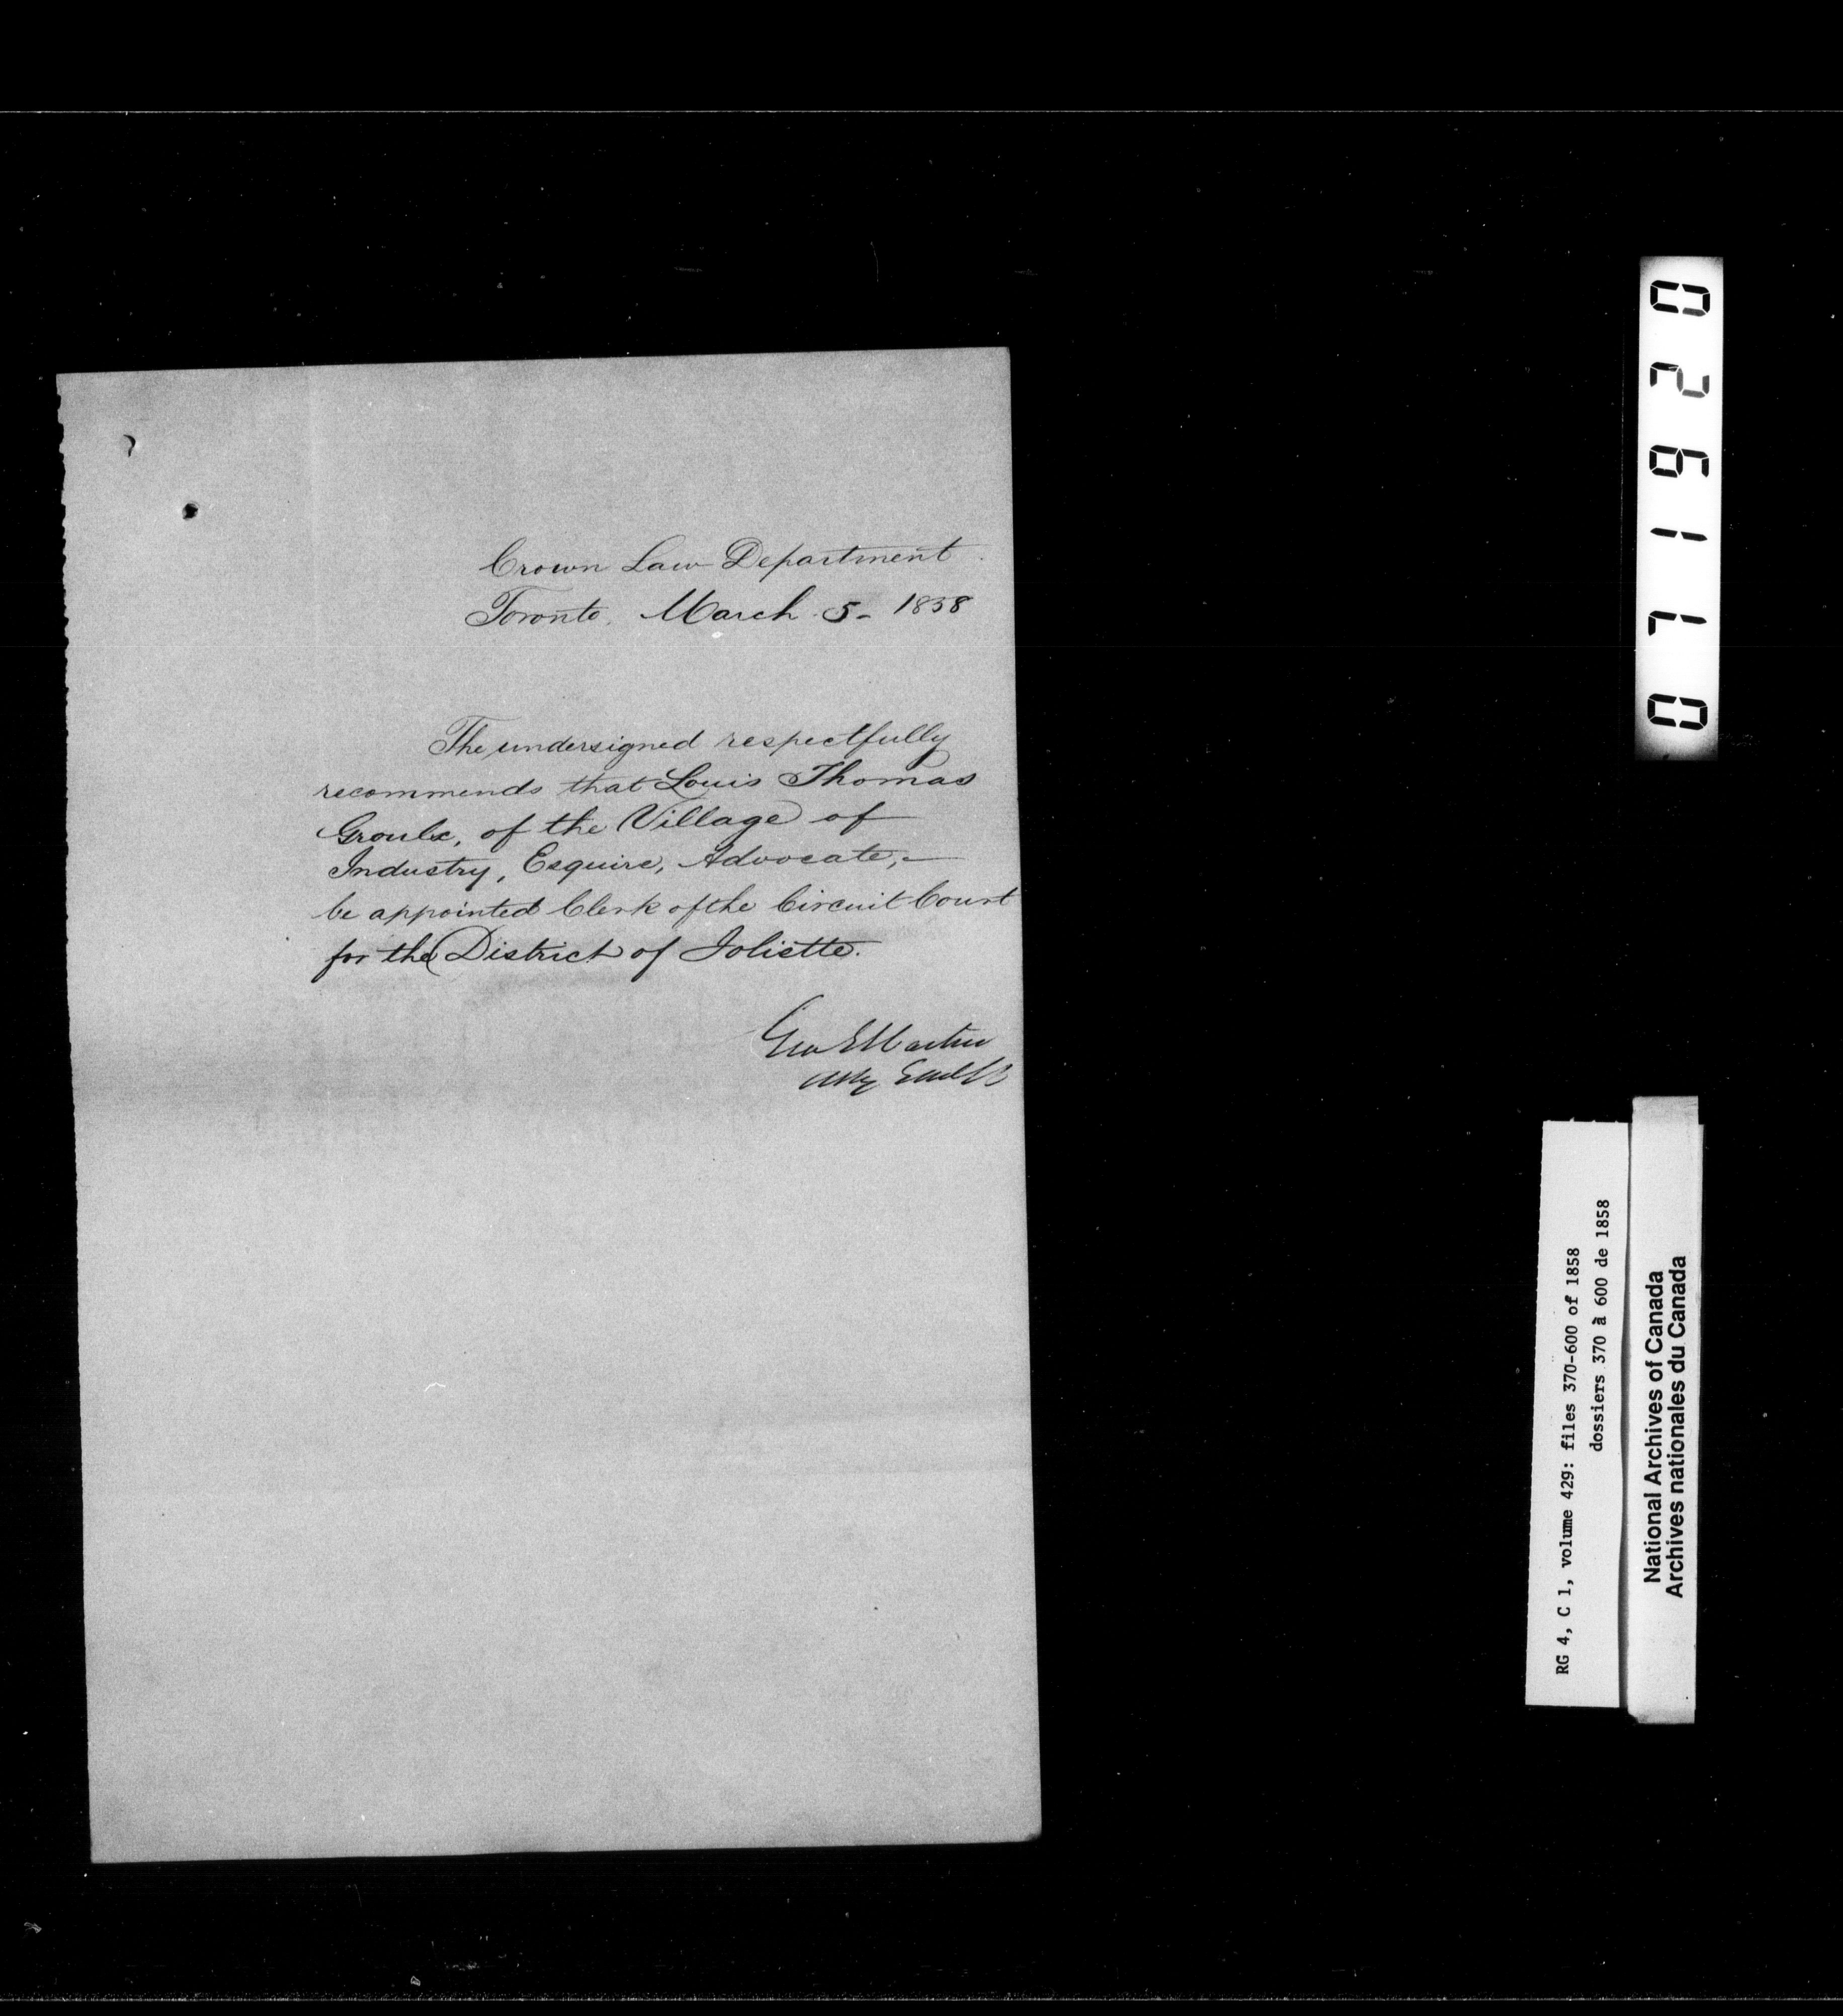 Crown Law Department
Toronto, March 5- 1858
The undersigned respectfully
recommends that Louis Thomas
Groulx, of the Village of
Industry, Esquire, Advocate,—
be appointed Clerk of the Circuit Court
for the District of Joliette.
Geo E Cartier
Atty Genl LC
071920
RG 4, C 1, volume 429: files 370-600 of 1858
dossiers 370 à 600 de 1858
National Archives of Canada
Archives nationales du Canada